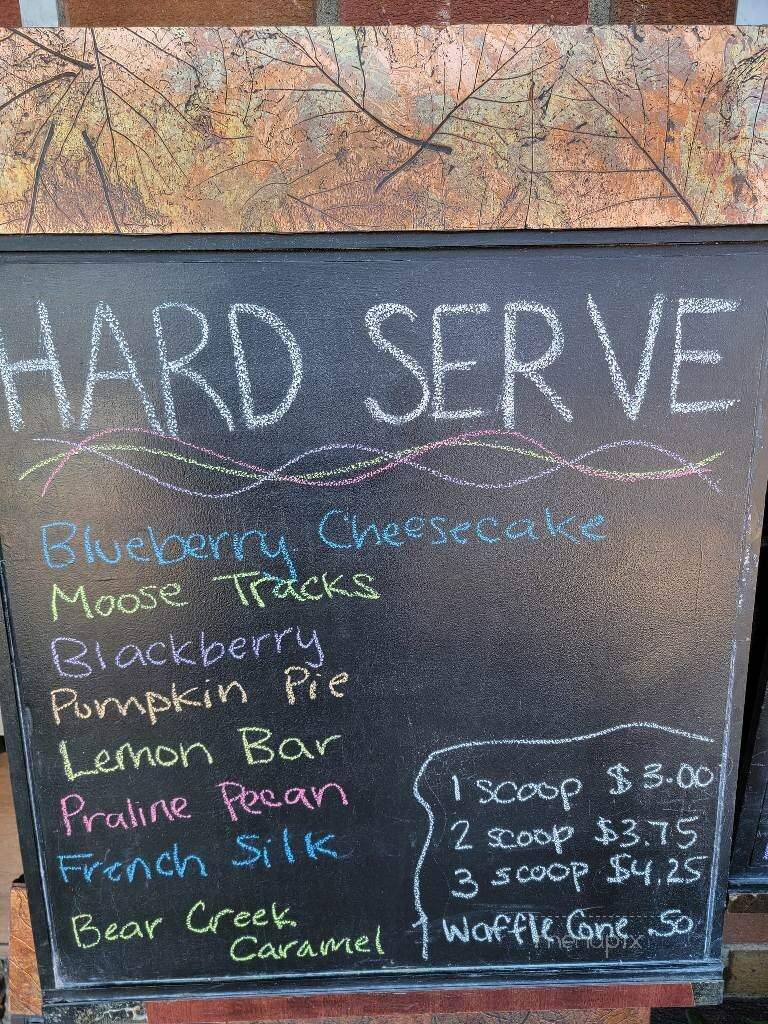 HARD SERVE
Blueberry Cheesecake
Moose Tracks
Blackberry
Pumpkin Pie
Lemon Bar
Praline Pecan
French Silk
Bear Creek
Caramel
1 scoop $3.00
2 scoop $3.75
3 scoop $4.25
Waffle Cone .50
menupix